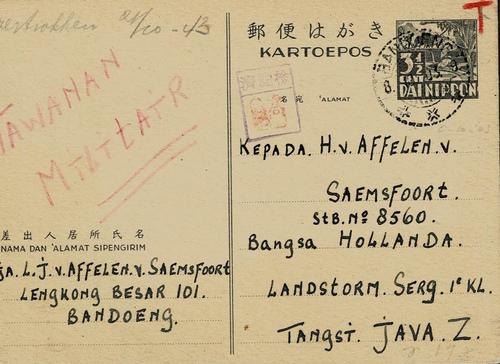 21/10-43
TAWANAN
MILITAIR
差出人居所氏名
NAMA DAN 'ALAMAT SIPENGIRIM
ja. L.J.v. AFFELEN.v. SAEMSFOORT
LENGKONG BESAR 101.
BANDOENG.
郵便はがき
KARTOEPOS
T
3½
CENT
DAI NIPPON
BANDOENG
8.
検閲済
名宛 'ALAMAT
KEPADA. H.v. AFFELEN.v.
SAEMSFOORT.
STB. Nº 8560.
Bangsa HOLLANDA.
LANDSTORM. SERG. 1e KL.
TANGST. JAVA. Z.